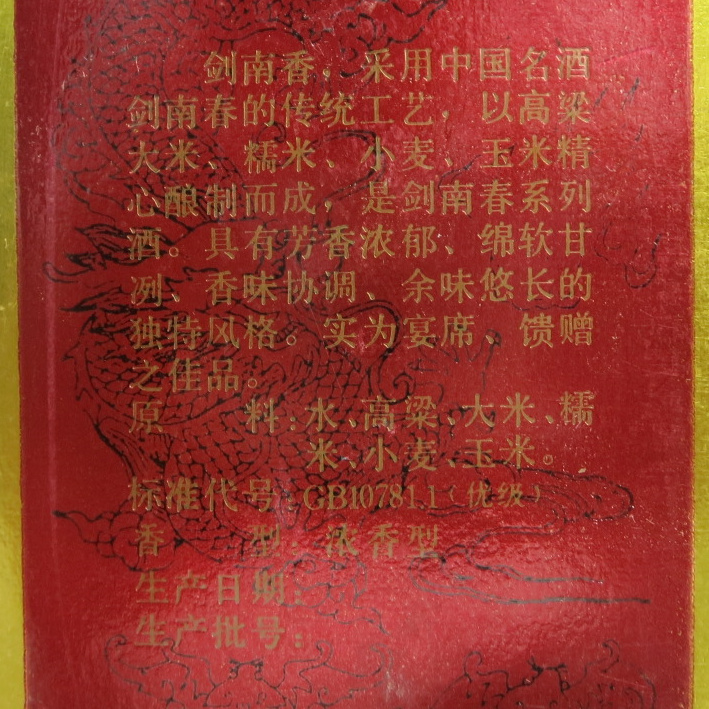 剑南香，采用中国名酒
剑南春的传统工艺，以高粱
大米、糯米、小麦、玉米精
心酿制而成，是剑南春系列
酒。具有芳香浓郁、绵软甘
冽、香味协调、余味悠长的
独特风格。实为宴席、馈赠
之佳品。
原 料:水、高粱、大米、糯
米、小麦、玉米。
标准代号:GB10781.1(优级)
香 型:浓香型
生产日期:
生产批号: